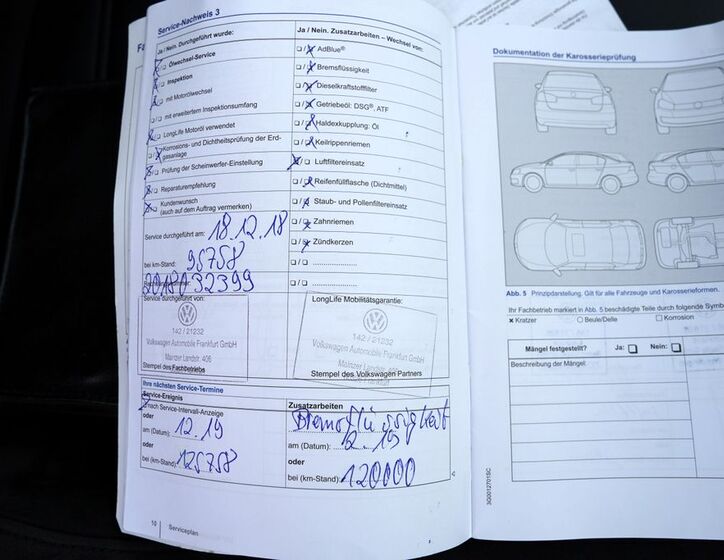 Service-Nachweis 3
Ja / Nein. Durchgeführt wurde:
Ölwechsel-Service
Inspektion
mit Motorölwechsel
mit erweitertem Inspektionsumfang
LongLife Motoröl verwendet
Korrosions- und Dichtheitsprüfung der Erdgasanlage
Prüfung der Scheinwerfer-Einstellung
Reparaturempfehlung
Kundenwunsch
(auch auf dem Auftrag vermerken)
Service durchgeführt am: 18.12.18
bei km-Stand: 95758
2018032399
Service durchgeführt von:
142 / 21232
Volkswagen Automobile Frankfurt GmbH
Mainzer Landstr. 406
Stempel des Fachbetriebs
Ja / Nein. Zusatzarbeiten – Wechsel von:
AdBlue®
Bremsflüssigkeit
Dieselkraftstofffilter
Getriebeöl: DSG®, ATF
Haldexkupplung: Öl
Keilrippenriemen
Luftfiltereinsatz
Reifenfüllflasche (Dichtmittel)
Staub- und Pollenfiltereinsatz
Zahnriemen
Zündkerzen
LongLife Mobilitätsgarantie:
142 / 21232
Volkswagen Automobile Frankfurt GmbH
Mainzer Landstr. 406
Stempel des Volkswagen Partners
Ihre nächsten Service-Termine
Service-Ereignis
nach Service-Intervall-Anzeige
oder
am (Datum): 12.19
oder
bei (km-Stand): 125758
Zusatzarbeiten
Bremsflüssigkeit
am (Datum): 12.19
oder
bei (km-Stand): 120000
10 Serviceplan
Dokumentation der Karosserieprüfung
Abb. 5 Prinzipdarstellung. Gilt für alle Fahrzeuge und Karosserieformen.
Ihr Fachbetrieb markiert in Abb. 5 beschädigte Teile durch folgende
x Kratzer ○ Beule/Delle □ Korrosion
Mängel festgestellt? Ja: □ Nein: □
Beschreibung der Mängel:
3G0012701SC